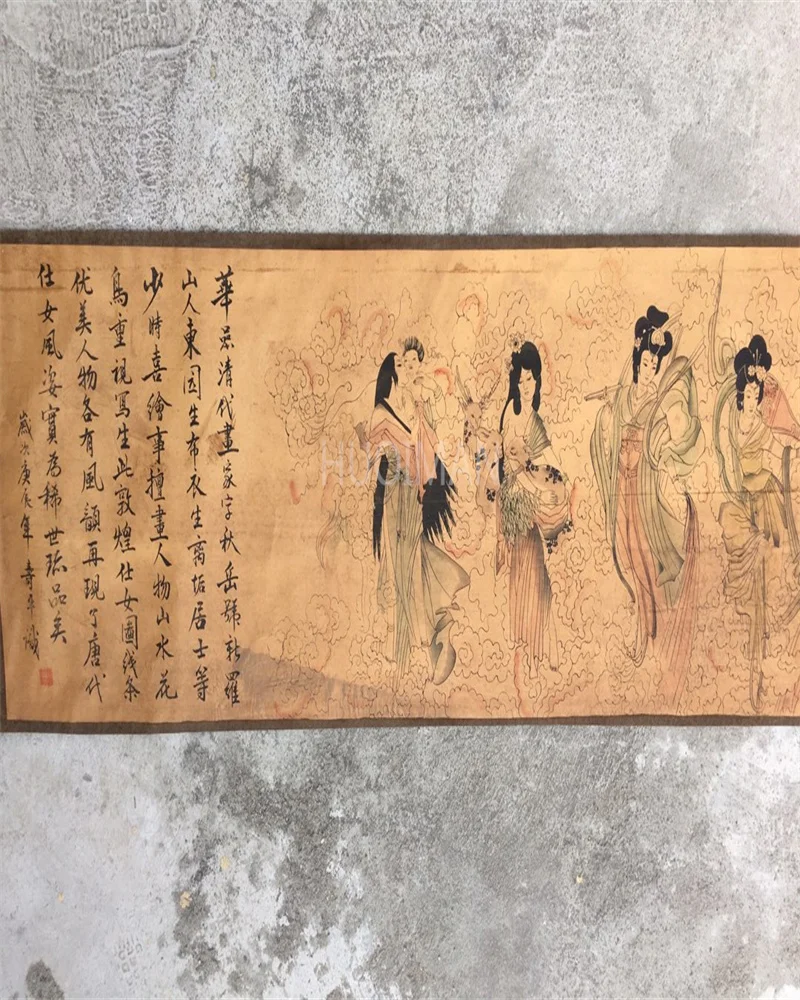 華喦清代畫家字秋岳號新羅
山人東园生布衣生离垢居士等
少時喜繪事擅畫人物山水花
鳥重視寫生此敦煌仕女圖线条
优美人物各有風韻再現了唐代
仕女風姿實為稀世珎品矣
歲次庚辰年
HUOLIAN